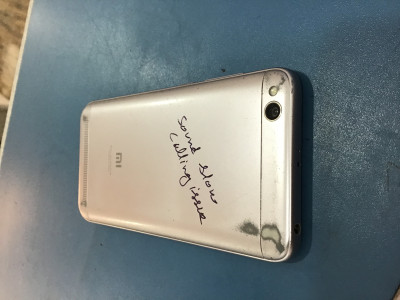 Sound slow
calling issue
mi